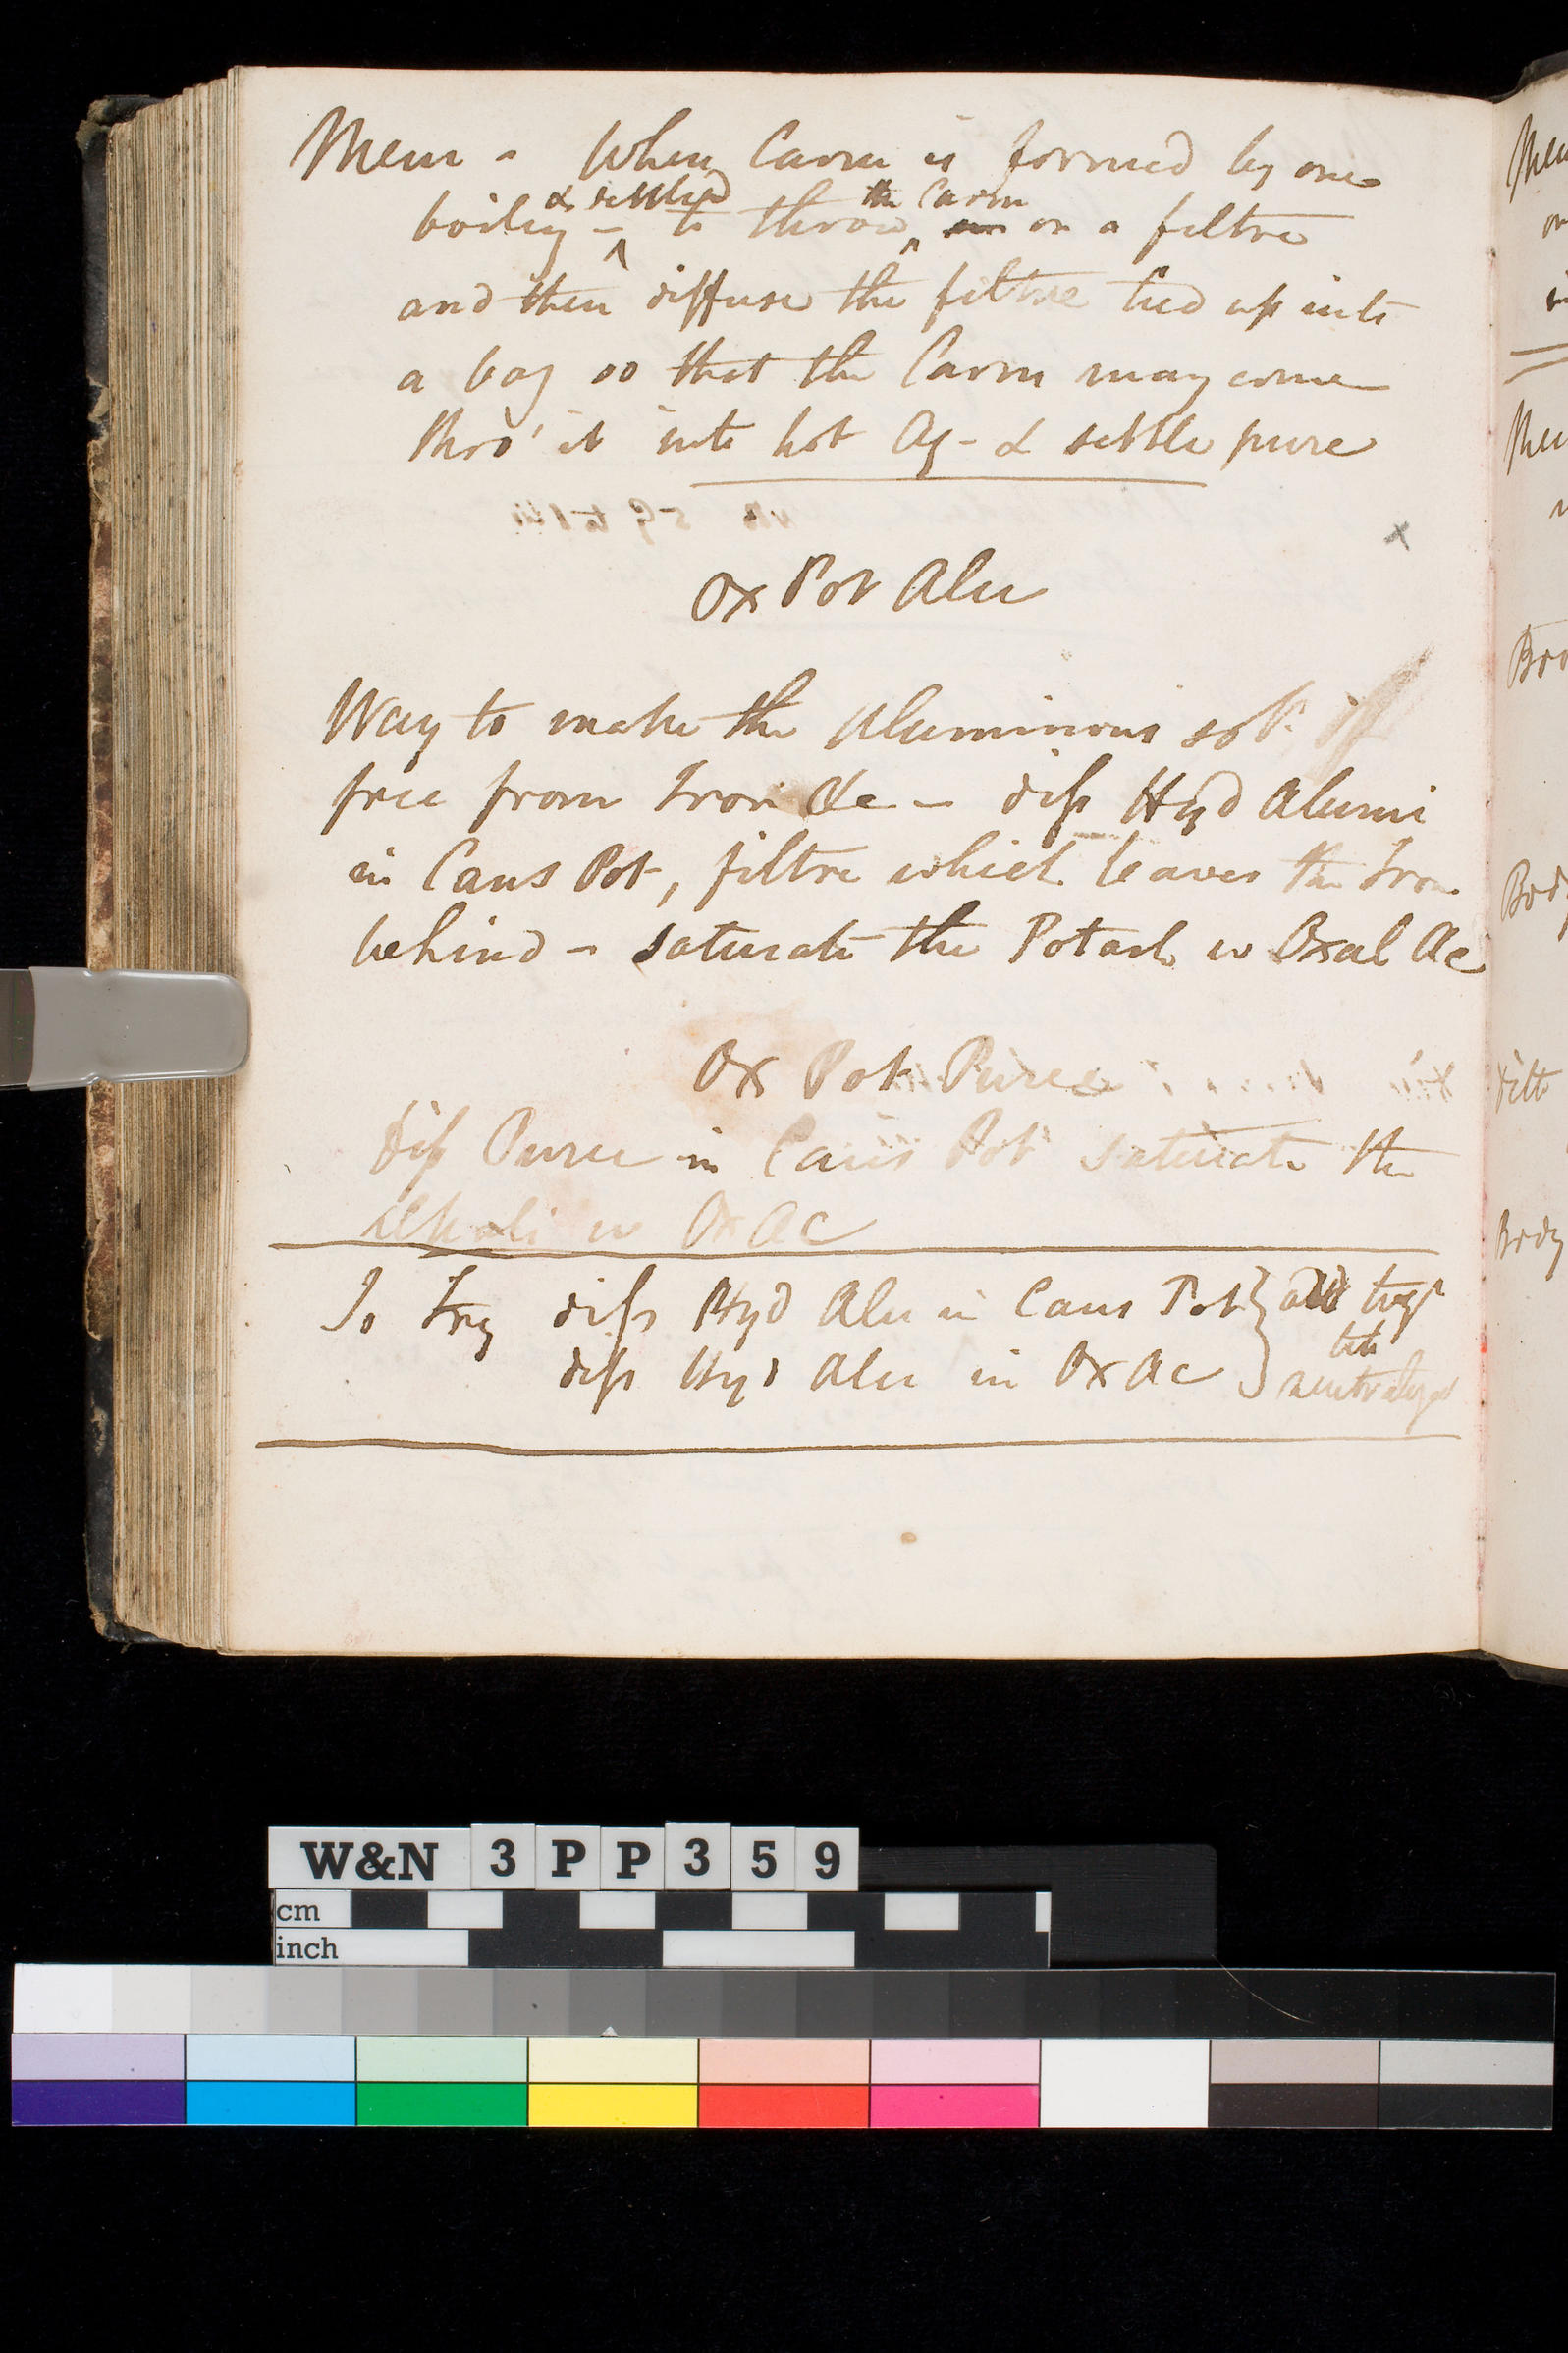 Mem - When Carm is formed by one
& settled the Carm
boilig - to throw on a filtre
and then diffuse the filtre tied up into
a bag so that the Carm may come
thro' it into hot Aq - & settle pure
x
Ox Pot Alu
Way to make the Aluminous sol:
free from Iron &c - diſs Hyd Alumi
in Caus Pot, filtre which leaves the Iron
behind - saturate the Potash w Oxal Ac
Ox Pot Puree
diſs Puree in Caus Pot saturate the
alkali w Ox Ac
To Try diſs Hyd Alu in Caus Pot } add togr
diſs Hyd Alu in Ox Ac } till
neutralized
W&N 3PP359
cm
inch
Mem
Bod
Body
filt
Body